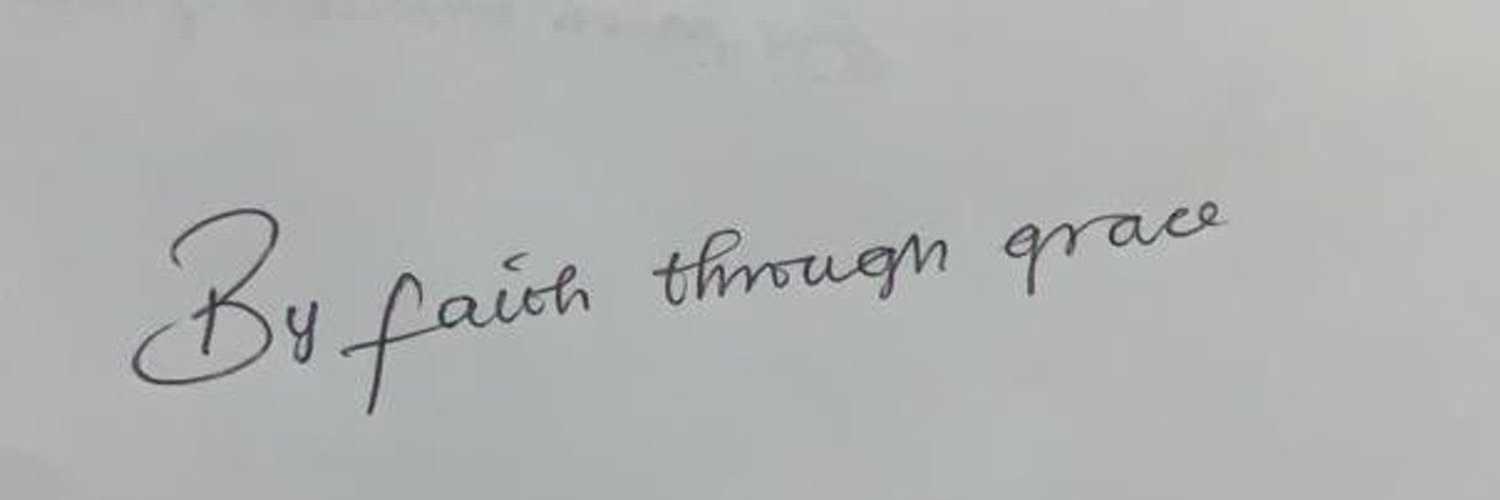 By faith through grace